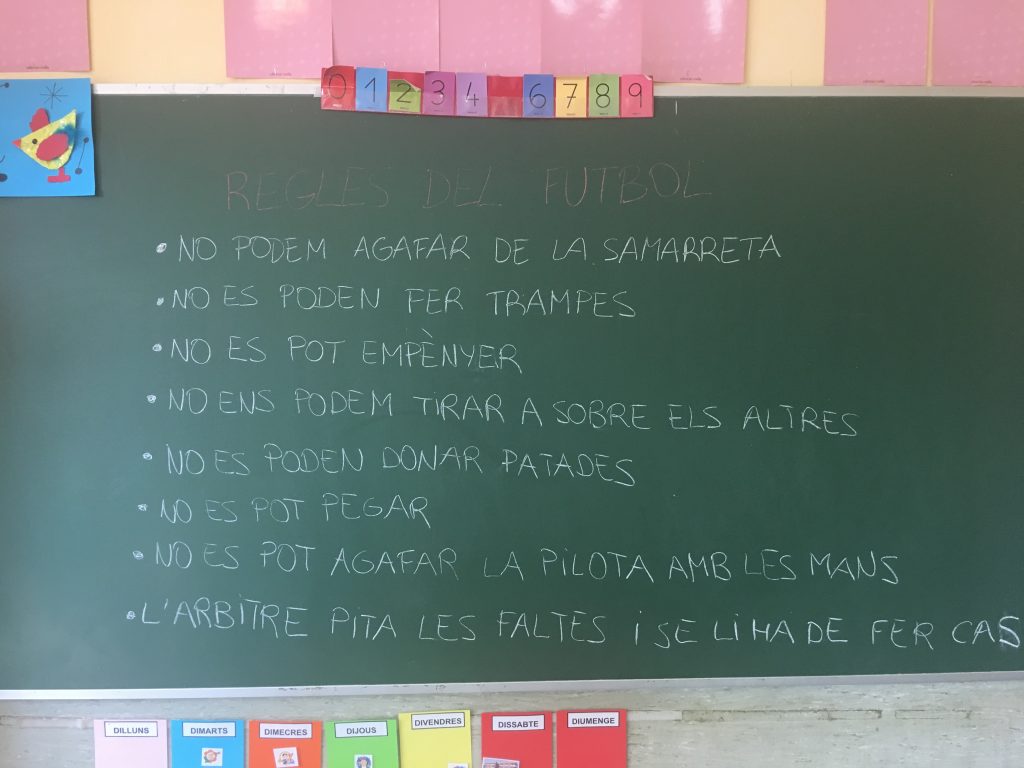 0 1 2 3 4 6 7 8 9
REGLES DEL FUTBOL
• NO PODEM AGAFAR DE LA SAMARRETA
• NO ES PODEN FER TRAMPES
• NO ES POT EMPÈNYER
• NO ENS PODEM TIRAR A SOBRE ELS ALTRES
• NO ES PODEN DONAR PATADES
• NO ES POT PEGAR
• NO ES POT AGAFAR LA PILOTA AMB LES MANS
• L'ARBITRE PITA LES FALTES I SE LI HA DE FER CAS
DILLUNS DIMARTS DIMECRES DIJOUS DIVENDRES DISSABTE DIUMENGE